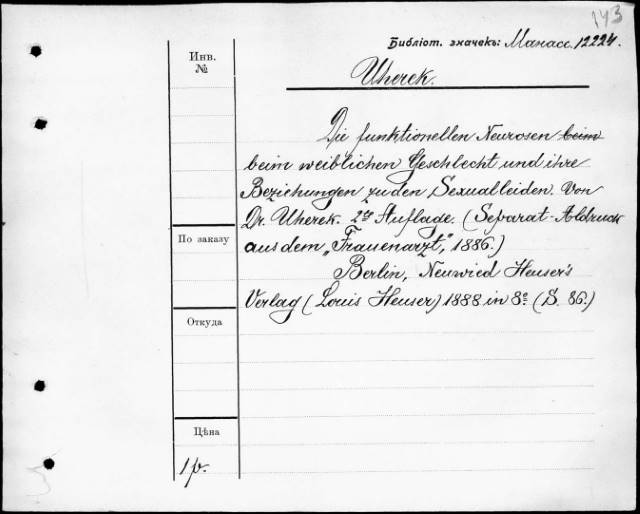 143
Библіот. значекъ: Манасс. 12224.
Инв.
№
Uherek.
Die funktionellen Neurosen beim
beim weiblichen Geschlecht und ihre
Beziehungen zu den Sexualleiden. Von
Dr. Uherek. 2te Auflage. (Separat-Abdruck
aus dem „Frauenarzt“, 1886.)
Berlin, Neuwied Heuser's
Verlag (Louis Heuser) 1888 in 8º (S. 86.)
По заказу
Откуда
Цѣна
1 р.